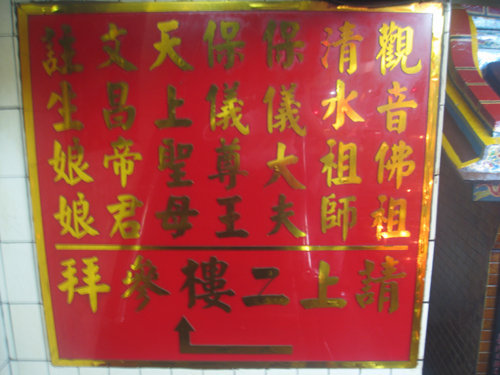 觀音佛祖
清水祖師
保儀大夫
保儀尊王
天上聖母
文昌帝君
註生娘娘
請上二樓參拜